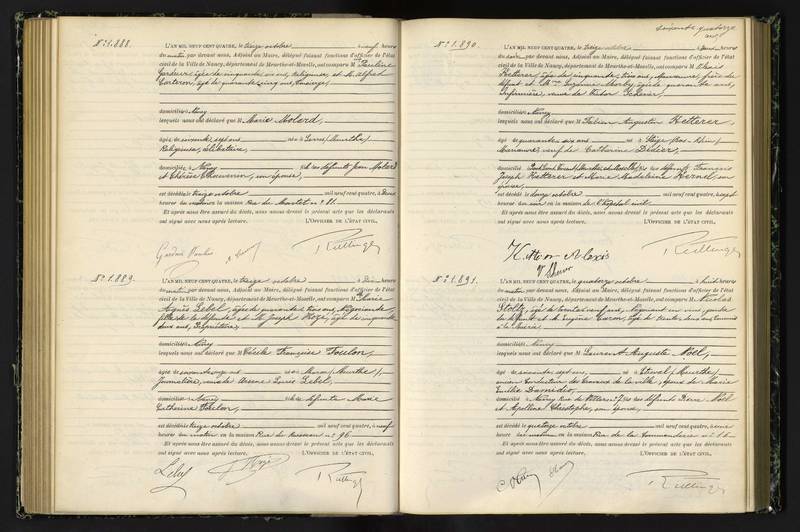 N° 1.888.
L'AN MIL NEUF CENT QUATRE, le treize octobre à neuf heures
du matin par devant nous, Adjoint au Maire, délégué faisant fonctions d'officier de l'état
civil de la Ville de Nancy, département de Meurthe-et-Moselle, ont comparu M Pauline
âgée de cinquante six ans, Religieuse, et M. Alfred
âgé de quarante cinq ans,
domiciliés à Nancy
lesquels nous ont déclaré que M Marie Molard,
âgée de soixante sept ans née à (Meurthe)
Religieuse, célibataire,
domiciliée à Nancy fille des défunts Jean Molard
et Thérèse son épouse,
est décédée le treize octobre mil neuf cent quatre, à deux
heures du matin en la maison Rue de n° 11
Et après nous être assuré du décès, nous avons dressé le présent acte que les déclarants
ont signé avec nous après lecture. L'OFFICIER DE L'ÉTAT CIVIL,
N° 1.889.
L'AN MIL NEUF CENT QUATRE, le treize octobre à dix heures
du matin par devant nous, Adjoint au Maire, délégué faisant fonctions d'officier de l'état
civil de la Ville de Nancy, département de Meurthe-et-Moselle, ont comparu M Marie
Agnès Lebel, âgée de quarante trois ans, Négociante
fille de la défunte et M. Joseph âgé de cinquante
deux ans, Propriétaire,
domiciliés à Nancy
lesquels nous ont déclaré que M Cécile Françoise Toulon,
âgée de ans née à (Meurthe),
Journalière, veuve de Louis Lebel,
domiciliée à Nancy fille de défunte Marie
Catherine Toulon,
est décédée le treize octobre mil neuf cent quatre, à neuf
heures du matin en la maison Rue du n° 96
Et après nous être assuré du décès, nous avons dressé le présent acte que les déclarants
ont signé avec nous après lecture. L'OFFICIER DE L'ÉTAT CIVIL,
Lebel
soixante quatorze
N° 1.890.
L'AN MIL NEUF CENT QUATRE, le treize octobre à deux heures
du soir par devant nous, Adjoint au Maire, délégué faisant fonctions d'officier de l'état
civil de la Ville de Nancy, département de Meurthe-et-Moselle, ont comparu M Alexis
Hetterer, âgé de cinquante trois ans, Manœuvre, frère du
défunt et Mme Suzanne âgée de quarante ans,
Infirmière, veuve de Victor Scherrer,
domiciliés à Nancy
lesquels nous ont déclaré que M Fabien Augustin Hetterer,
âgé de quarante six ans né à (Bas-Rhin)
Manœuvre, veuf de Catherine Didier,
domicilié à (Meurthe-et-Moselle) fils des défunts François
Joseph Hetterer et Marie Madeleine son
épouse,
est décédé le douze octobre mil neuf cent quatre, à sept
heures du soir en la maison de l'hôpital civil
Et après nous être assuré du décès, nous avons dressé le présent acte que les déclarants
ont signé avec nous après lecture. L'OFFICIER DE L'ÉTAT CIVIL,
Alexis
N° 1.891.
L'AN MIL NEUF CENT QUATRE, le quatorze octobre à huit heures
du matin par devant nous, Adjoint au Maire, délégué faisant fonctions d'officier de l'état
civil de la Ville de Nancy, département de Meurthe-et-Moselle, ont comparu M. Nicolas
Stoltz, âgé de trente neuf ans, Négociant en vins, gendre
du défunt et M. Eugène Caron, âgé de trente deux ans, Employé
à la Mairie
domiciliés à Nancy
lesquels nous ont déclaré que M Laurent Auguste Noël,
âgé de soixante sept ans, né à (Meurthe)
ancien Conducteur des travaux de la ville, époux de Marie
Emilie
domicilié à Nancy Rue de Villers n° 7 fils des défunts Pierre Noël
et Apolline Christophe, son épouse,
est décédé le quatorze octobre mil neuf cent quatre, à une
heure du matin en la maison Rue de la Commanderie n° 16
Et après nous être assuré du décès, nous avons dressé le présent acte que les déclarants
ont signé avec nous après lecture. L'OFFICIER DE L'ÉTAT CIVIL,